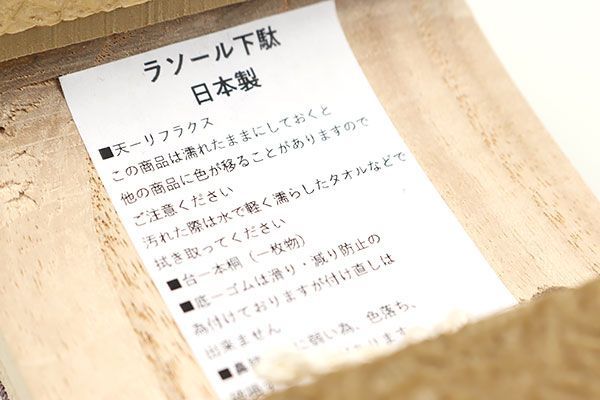 ラソール下駄
日本製
■天ーリフラクス
この商品は濡れたままにしておくと
他の商品に色が移ることがありますので
ご注意ください
汚れた際は水で軽く濡らしたタオルなどで
拭き取ってください
■台ー本桐（一枚物）
■底ーゴムは滑り・減り防止の
為付けておりますが付け直しは
出来ません
■鼻
に弱い為、色落ち、
ります